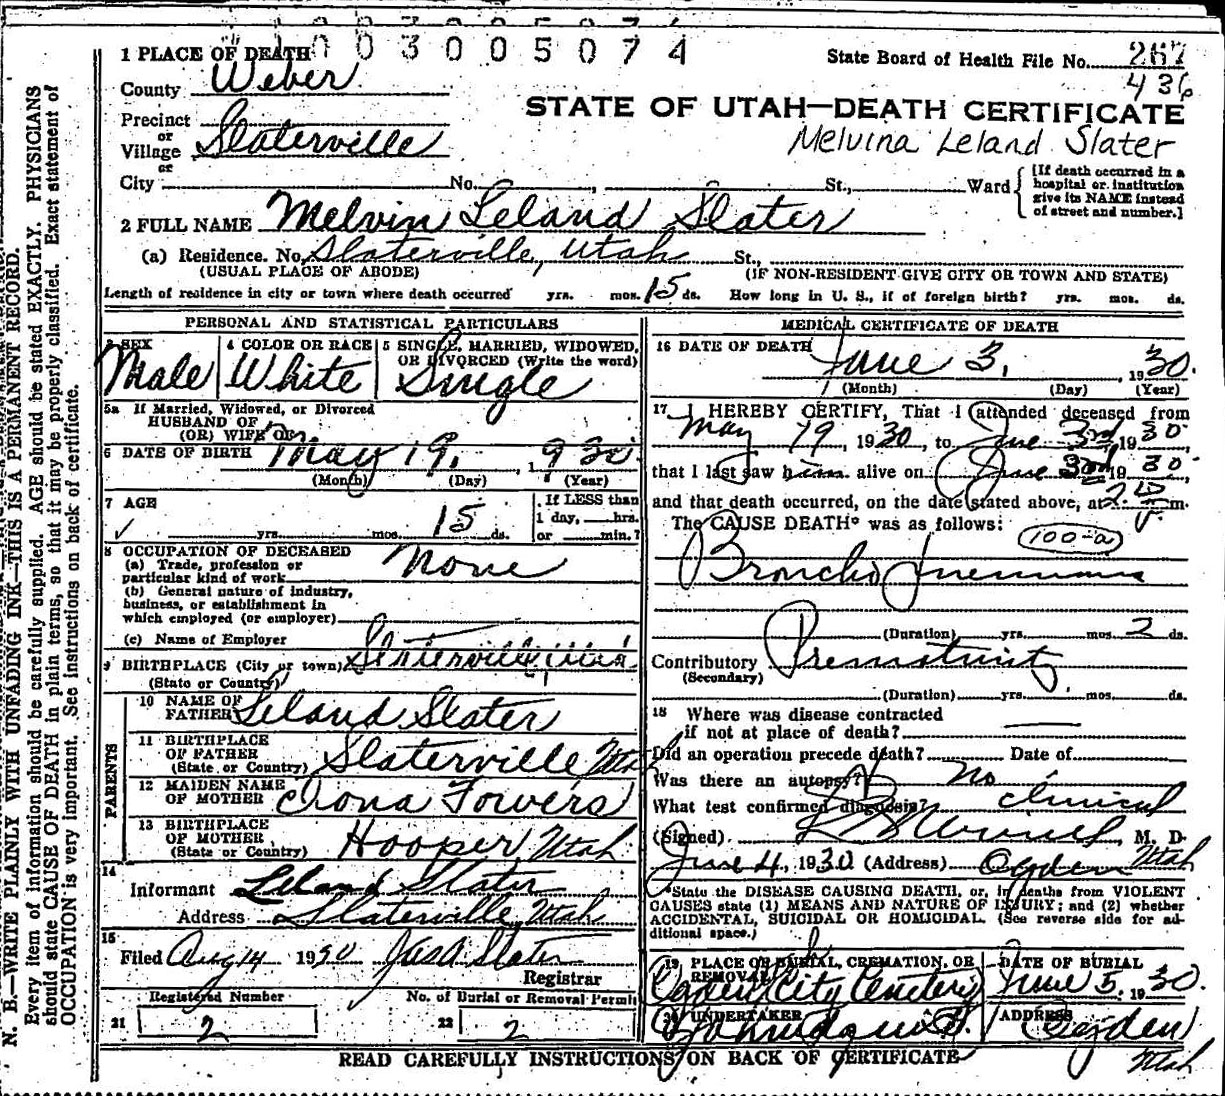 1003005074
1 PLACE OF DEATH
State Board of Health File No. 267
436
County Weber
STATE OF UTAH—DEATH CERTIFICATE
Precinct
or
Village Slaterville
Melvina Leland Slater
or
City No. , St., Ward
[If death occurred in a
hospital or institution
give its NAME instead
of street and number.]
2 FULL NAME Melvin Leland Slater
(a) Residence. No. Slaterville, Utah St.,
(USUAL PLACE OF ABODE) (IF NON-RESIDENT GIVE CITY OR TOWN AND STATE)
Length of residence in city or town where death occurred yrs. mos. 15 ds. How long in U. S., if of foreign birth? yrs. mos. ds.
PERSONAL AND STATISTICAL PARTICULARS
3 SEX 4 COLOR OR RACE 5 SINGLE, MARRIED, WIDOWED,
OR DIVORCED (Write the word)
Male White Single
5a If Married, Widowed, or Divorced
HUSBAND OF
(OR) WIFE OF
6 DATE OF BIRTH May 19, 1930
(Month) (Day) (Year)
7 AGE
yrs. mos. 15 ds.
If LESS than
1 day, hrs.
or min.?
8 OCCUPATION OF DECEASED
(a) Trade, profession or
particular kind of work None
(b) General nature of industry,
business, or establishment in
which employed (or employer)
(c) Name of Employer
9 BIRTHPLACE (City or town) Slaterville, Utah
(State or Country)
PARENTS
10 NAME OF
FATHER Leland Slater
11 BIRTHPLACE
OF FATHER
(State or Country) Slaterville Utah
12 MAIDEN NAME
OF MOTHER Iona Fowers
13 BIRTHPLACE
OF MOTHER
(State or Country) Hooper, Utah
14
Informant Leland Slater
Address Slaterville, Utah
15
Filed Aug 14 1930 Jas A Slater
Registrar
Registered Number No. of Burial or Removal Permit
21 2 22 2
MEDICAL CERTIFICATE OF DEATH
16 DATE OF DEATH June 3, 1930.
(Month) (Day) (Year)
17 I HEREBY CERTIFY, That I attended deceased from
May 19, 1930, to June 3rd, 1930,
that I last saw him alive on June 3rd 1930,
and that death occurred, on the date stated above, at m.
The CAUSE DEATH* was as follows:
100-a
Broncho Pneumonia
(Duration) yrs. mos. 2 ds.
Contributory Prematurity
(Secondary)
(Duration) yrs. mos. ds.
18 Where was disease contracted
if not at place of death?
Did an operation precede death? Date of
Was there an autopsy? No
What test confirmed diagnosis? Clinical
(Signed) M. D.
June 4, 1930 (Address) Ogden Utah
*State the DISEASE CAUSING DEATH, or, in deaths from VIOLENT
CAUSES state (1) MEANS AND NATURE OF INJURY; and (2) whether
ACCIDENTAL, SUICIDAL OR HOMICIDAL. (See reverse side for ad-
ditional space.)
19 PLACE OF BURIAL, CREMATION, OR
REMOVAL
DATE OF BURIAL
Ogden City Cemetery June 5, 1930.
20 UNDERTAKER ADDRESS
Ogden
Utah
READ CAREFULLY INSTRUCTIONS ON BACK OF CERTIFICATE
N. B.—WRITE PLAINLY WITH UNFADING INK—THIS IS A PERMANENT RECORD.
Every item of information should be carefully supplied. AGE should be stated EXACTLY. PHYSICIANS
should state CAUSE OF DEATH in plain terms, so that it may be properly classified. Exact statement of
OCCUPATION is very important. See instructions on back of certificate.